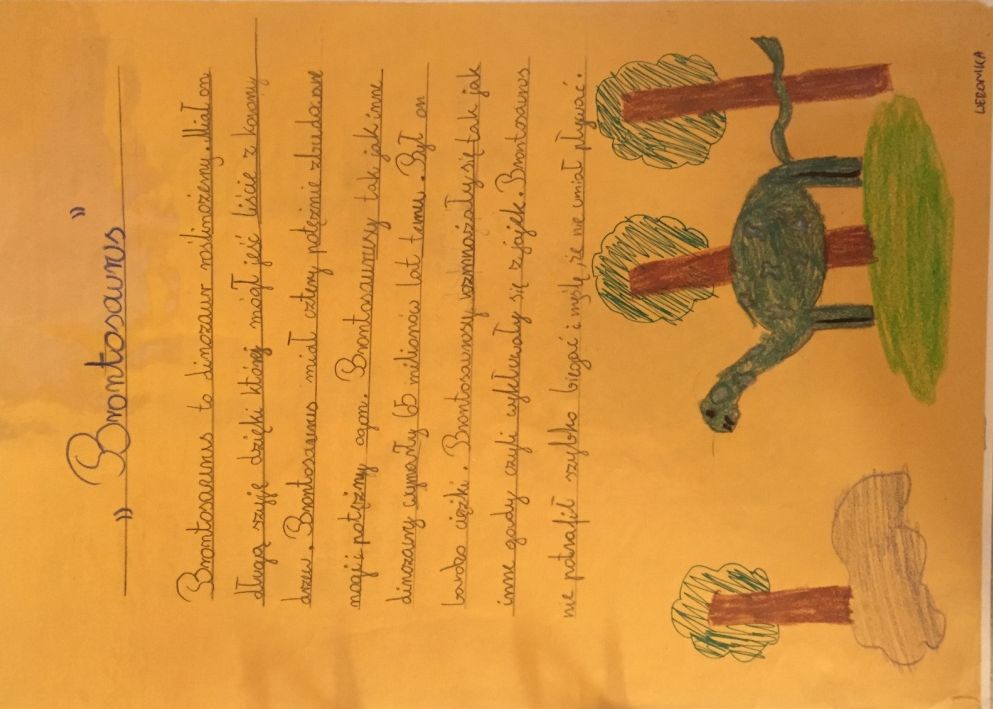 „Brontosaurus”
Brontosaurus to dinozaur roślinożerny. Miał on
długą szyję dzięki której mógł jeść liście z korony
drzew. Brontosaurus miał cztery potężnie zbudowane
nogi i potężny ogon. Brontosaurusy tak jak inne
dinozaury wymarły 65 milionów lat temu. Był on
bardzo ciężki. Brontosaurusy rozmnażały się tak jak
inne gady czyli wykluwały się z jajek. Brontosaurus
nie potrafił szybko biegać i myślę że nie umiał pływać.
WERONIKA